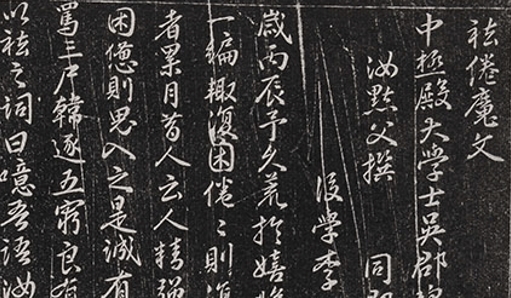 祛倦魔文
中極殿大學士吳郡
汝默父撰　同
後學李
歲丙辰予久荒於嬉
一編輒復困倦〻則
者累月昔人云人精
困億則思入之是誠有
罵三尸韓逐五窮良有
以祛之詞曰噫吾語汝